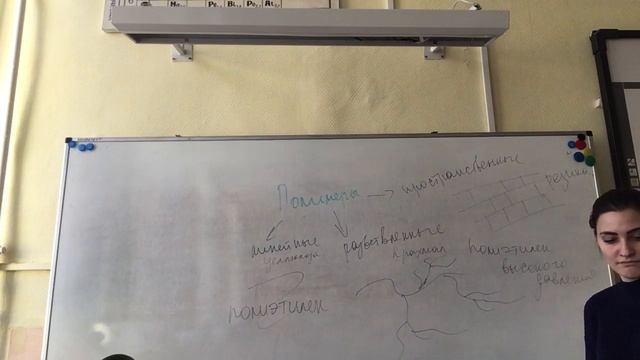 Полимеры → пространственные
резина
линейные
целлюлоза
разветвленные
крахмал
полиэтилен
полиэтилен
высокого
давления